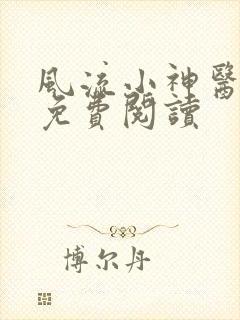 風流小神醫
免費閱讀
博尔丹